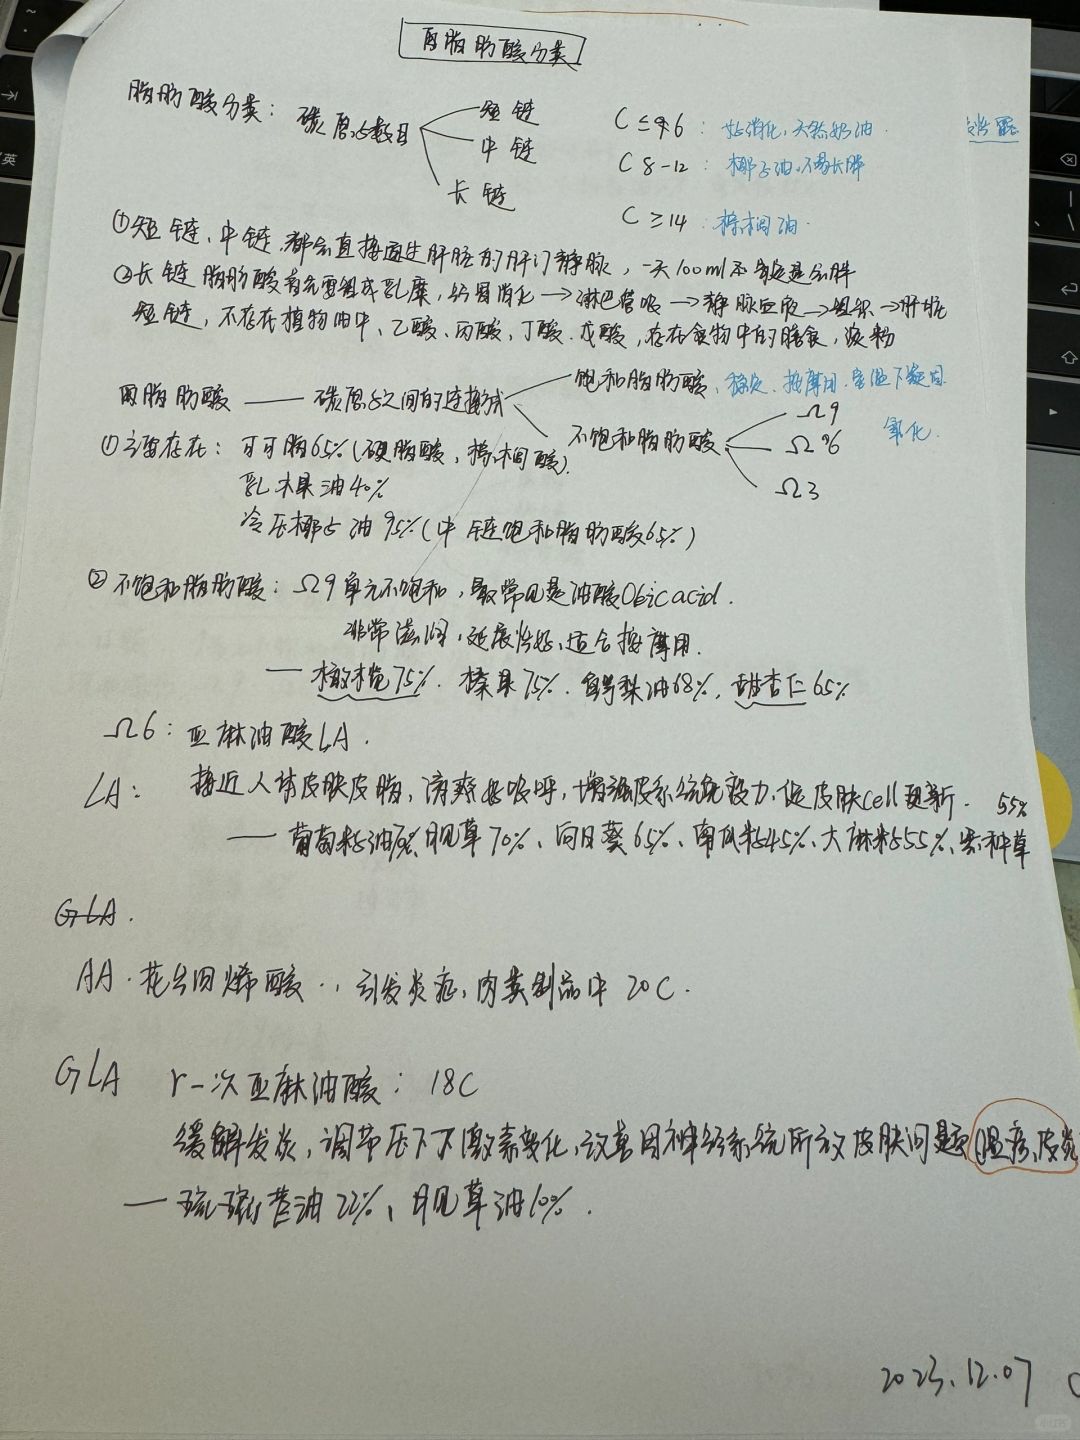 脂肪酸分类
脂肪酸分类： 碳原子数目
短链 C ≤ 6： 好消化，天然奶油．
中链 C 8-12： 椰子油．不易长胖
长链 C ≥ 14： 棕榈油．
①短链、中链．都会直接通过肝脏的肝门静脉，一天100ml不会
②长链脂肪酸首先要组成乳糜，肠胃消化→淋巴管吸→静脉血液→组织→肝脏
短链，不存在植物油中、乙酸、丙酸、丁酸．戊酸，存在食物中的膳食，淀粉
脂肪酸 —— 碳原子之间的连接方式
饱和脂肪酸、稳定．按摩用．室温下凝固．
不饱和脂肪酸 Ω9 Ω6 Ω3 氧化．
①主要存在： 可可脂65%（硬脂酸，棕榈酸）．
乳木果油40%
冷压椰子油95%（中链饱和脂肪酸65%）
②不饱和脂肪酸： Ω9单元不饱和，最常见是油酸 acid．
非常滋润，延展性好，适合按摩用．
—— 橄榄75%．榛果75%．油68%，甜杏仁65%
Ω6： 亚麻油酸LA．
LA： 接近人体皮肤皮脂，清爽好吸呼，增强皮系统免疫力，促皮肤cell更新． 55%
—— 葡萄籽油 月见草70%、向日葵65%、南瓜籽45%、大麻籽55%、种草
GLA．
AA．花生四烯酸．，引发炎症，肉类制品中 20C．
GLA γ-次亚麻油酸： 18C
缓解发炎，调节压下激素变化，改善因神经系统所 皮肤问题 湿疹、皮炎
—— 琉璃苣油22%、月见草油10%．
2023.12.07
小红书